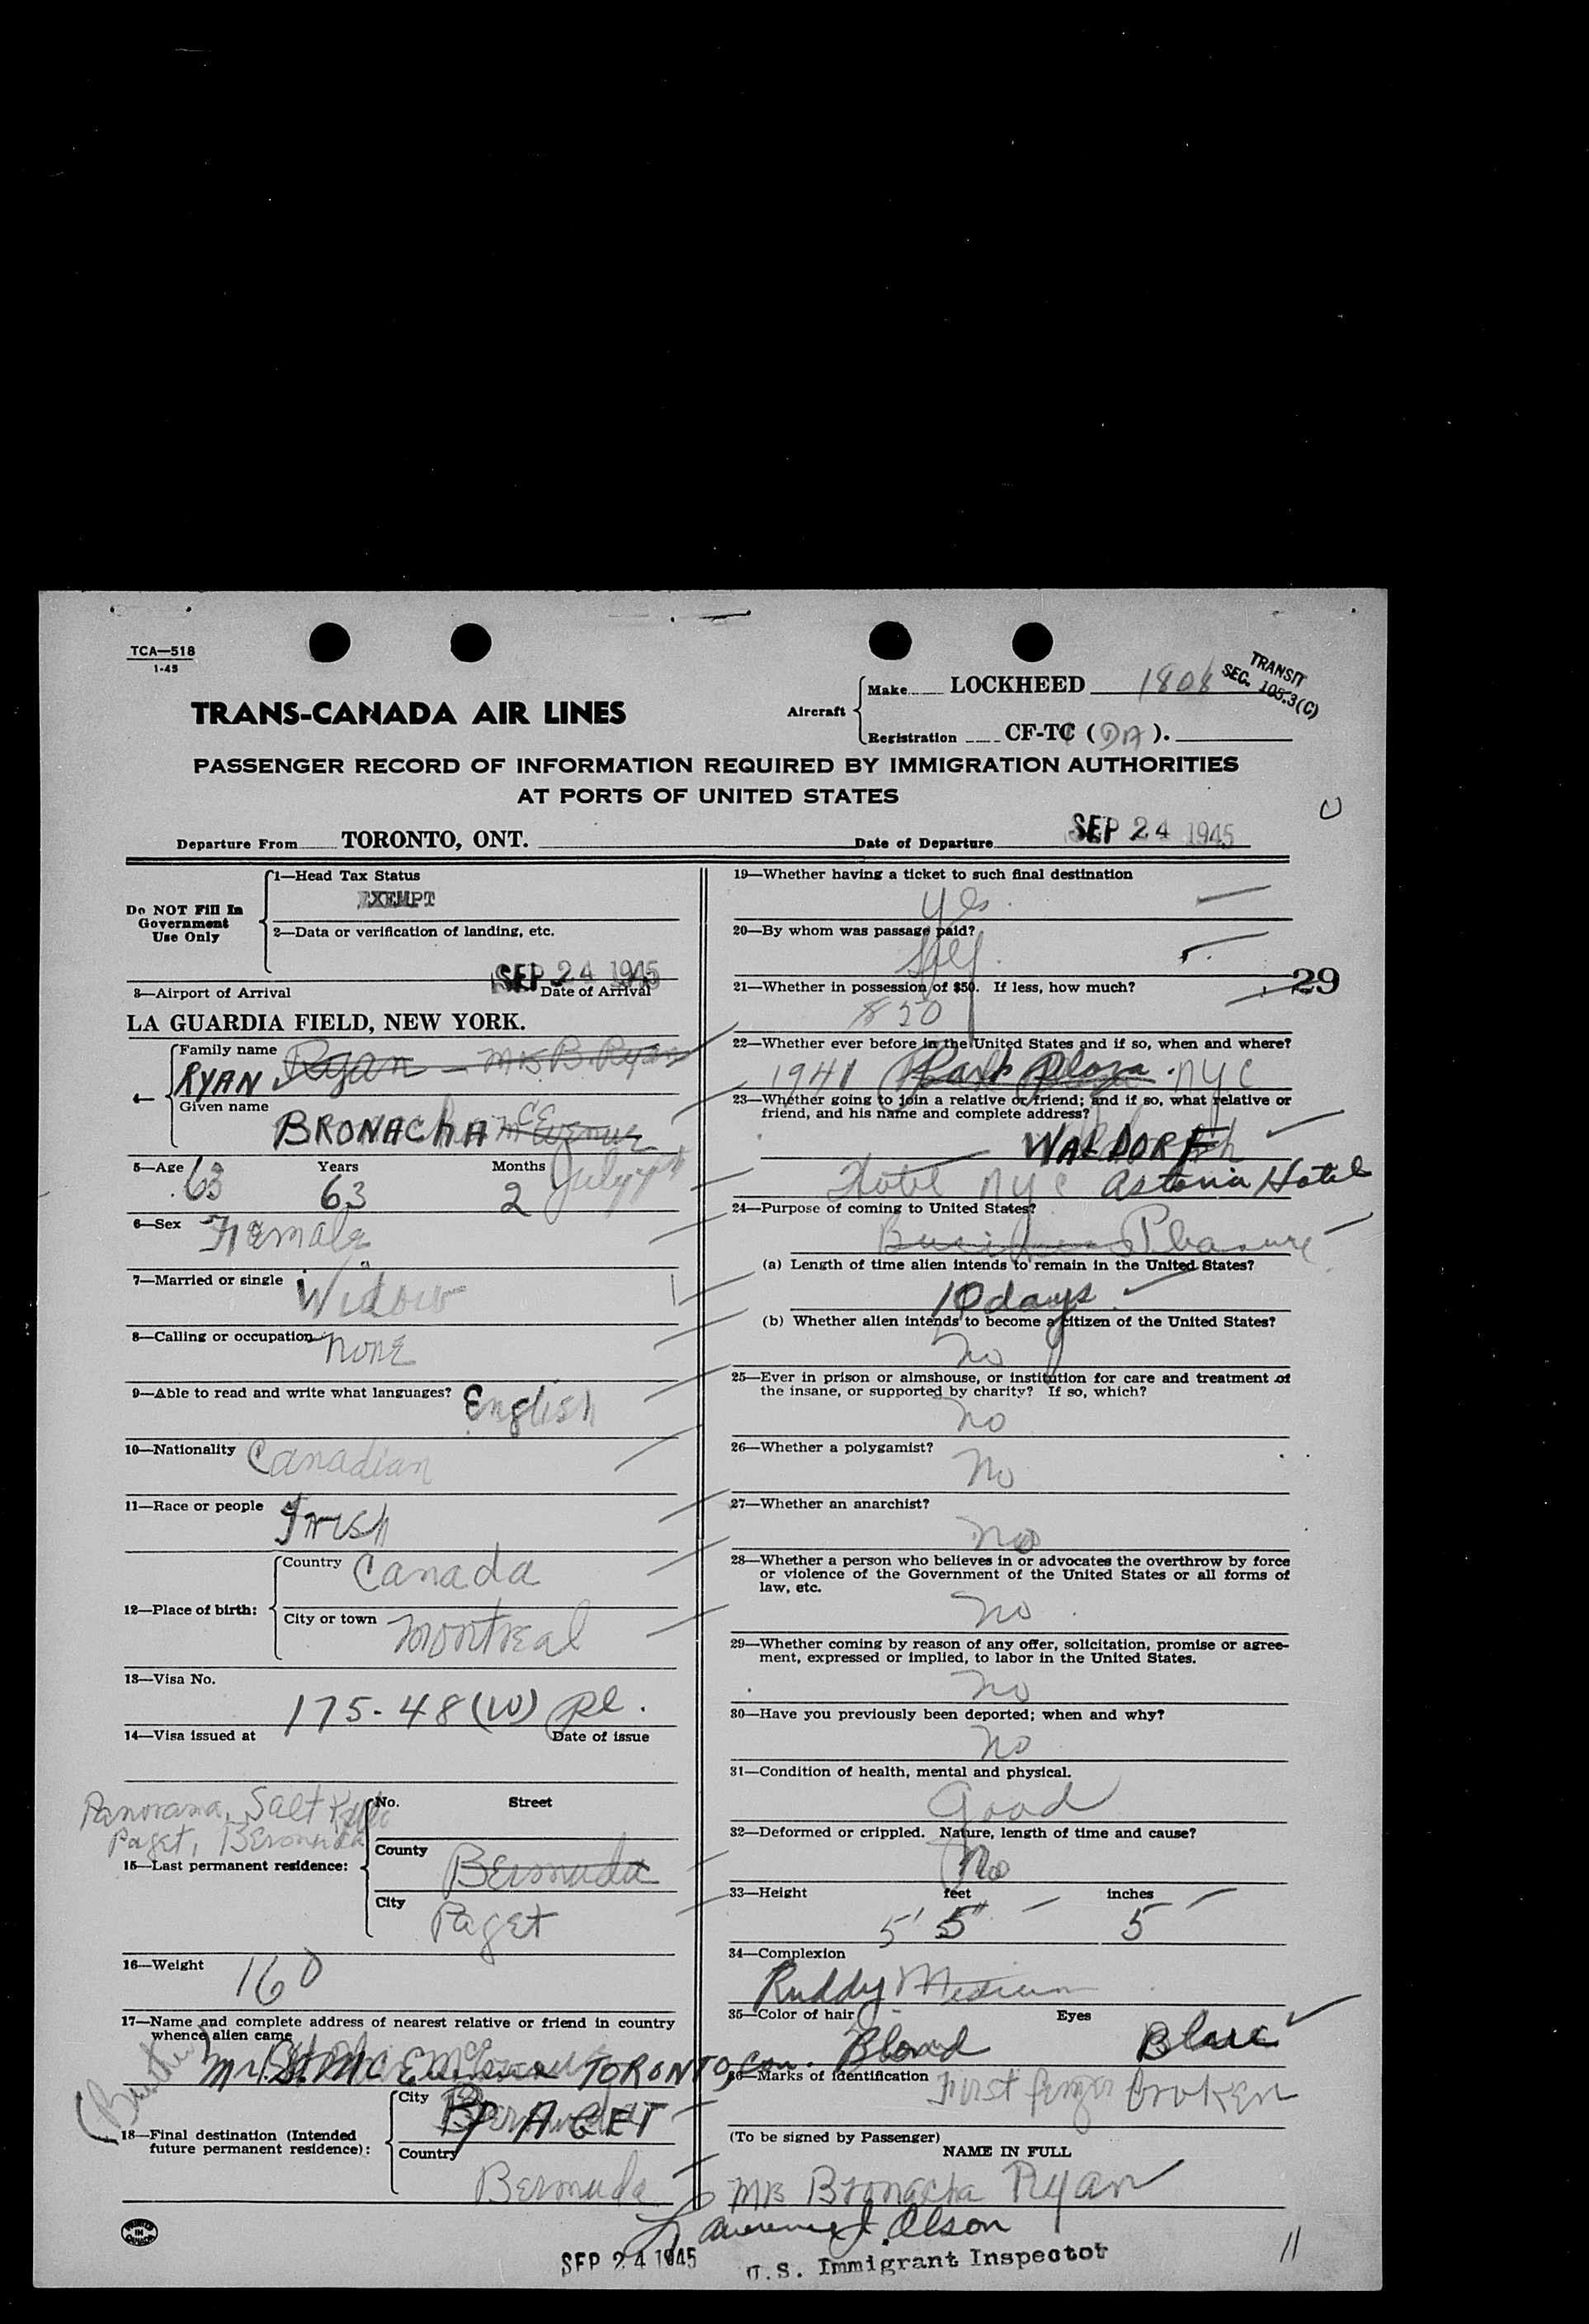 TCA—518
1-45
TRANSIT
SEC. 105.3(C)
Aircraft
Make LOCKHEED 1808
Registration CF-TC (DA).
TRANS-CANADA AIR LINES
PASSENGER RECORD OF INFORMATION REQUIRED BY IMMIGRATION AUTHORITIES
AT PORTS OF UNITED STATES
Departure From TORONTO, ONT. Date of Departure SEP 24 1945
Do NOT Fill In
Government
Use Only
1—Head Tax Status
EXEMPT
2—Data or verification of landing, etc.
SEP 24 1945
3—Airport of Arrival Date of Arrival
LA GUARDIA FIELD, NEW YORK.
Family name Ryan — Mrs B. Ryan
RYAN
Given name
BRONACHA
5—Age 63 Years 63 Months 2 July
6—Sex Female
7—Married or single Widow
8—Calling or occupation none
9—Able to read and write what languages? English
10—Nationality Canadian
11—Race or people Irish
12—Place of birth:
Country Canada
City or town Montreal
13—Visa No.
175-48(W) pl.
14—Visa issued at Date of issue
Panorama, Salt Kettle
Paget, Bermuda
No. Street
15—Last permanent residence:
County Bermuda
City Paget
16—Weight 160
17—Name and complete address of nearest relative or friend in country
whence alien came
TORONTO, Can.
(Brother)
18—Final destination (Intended
future permanent residence):
City PAGET
Country Bermuda
PRINTED
IN
CANADA
19—Whether having a ticket to such final destination
yes
20—By whom was passage paid?
self
21—Whether in possession of $50. If less, how much? 29
$50
22—Whether ever before in the United States and if so, when and where?
1941 Park Plaza. NYC
23—Whether going to join a relative or friend; and if so, what relative or
friend, and his name and complete address?
WALDORF
Hotel NYC Astoria Hotel
24—Purpose of coming to United States?
Business Pleasure
(a) Length of time alien intends to remain in the United States?
10 days
(b) Whether alien intends to become a citizen of the United States?
no
25—Ever in prison or almshouse, or institution for care and treatment of
the insane, or supported by charity? If so, which?
no
26—Whether a polygamist?
no
27—Whether an anarchist?
no
28—Whether a person who believes in or advocates the overthrow by force
or violence of the Government of the United States or all forms of
law, etc.
no
29—Whether coming by reason of any offer, solicitation, promise or agree-
ment, expressed or implied, to labor in the United States.
no
30—Have you previously been deported; when and why?
no
31—Condition of health, mental and physical.
Good
32—Deformed or crippled. Nature, length of time and cause?
No
33—Height feet inches
5' 5" 5
34—Complexion
Ruddy Medium
35—Color of hair Eyes
Blond Blue
36—Marks of identification First finger broken
(To be signed by Passenger)
NAME IN FULL
Mrs Bronacha Ryan
Lawrence J. Olson
SEP 24 1945 U.S. Immigrant Inspector
11